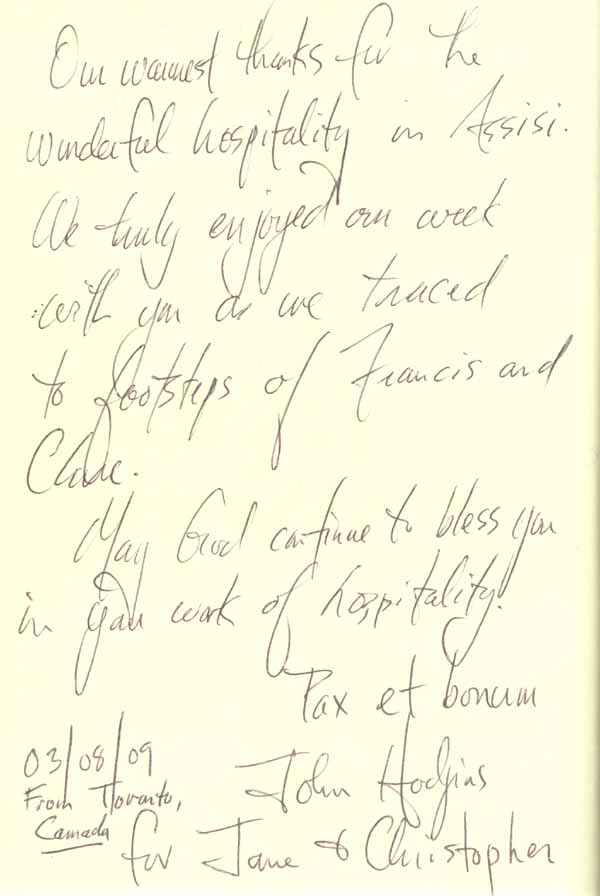 Our warmest thanks for the
wonderful hospitality in Assisi.
We truly enjoyed our week
with you as we traced
to footsteps of Francis and
Clare.
May God continue to bless you
in your work of hospitality.
Pax et bonum
03/08/09
From Toronto,
Canada
John Hodgins
for Jane & Christopher